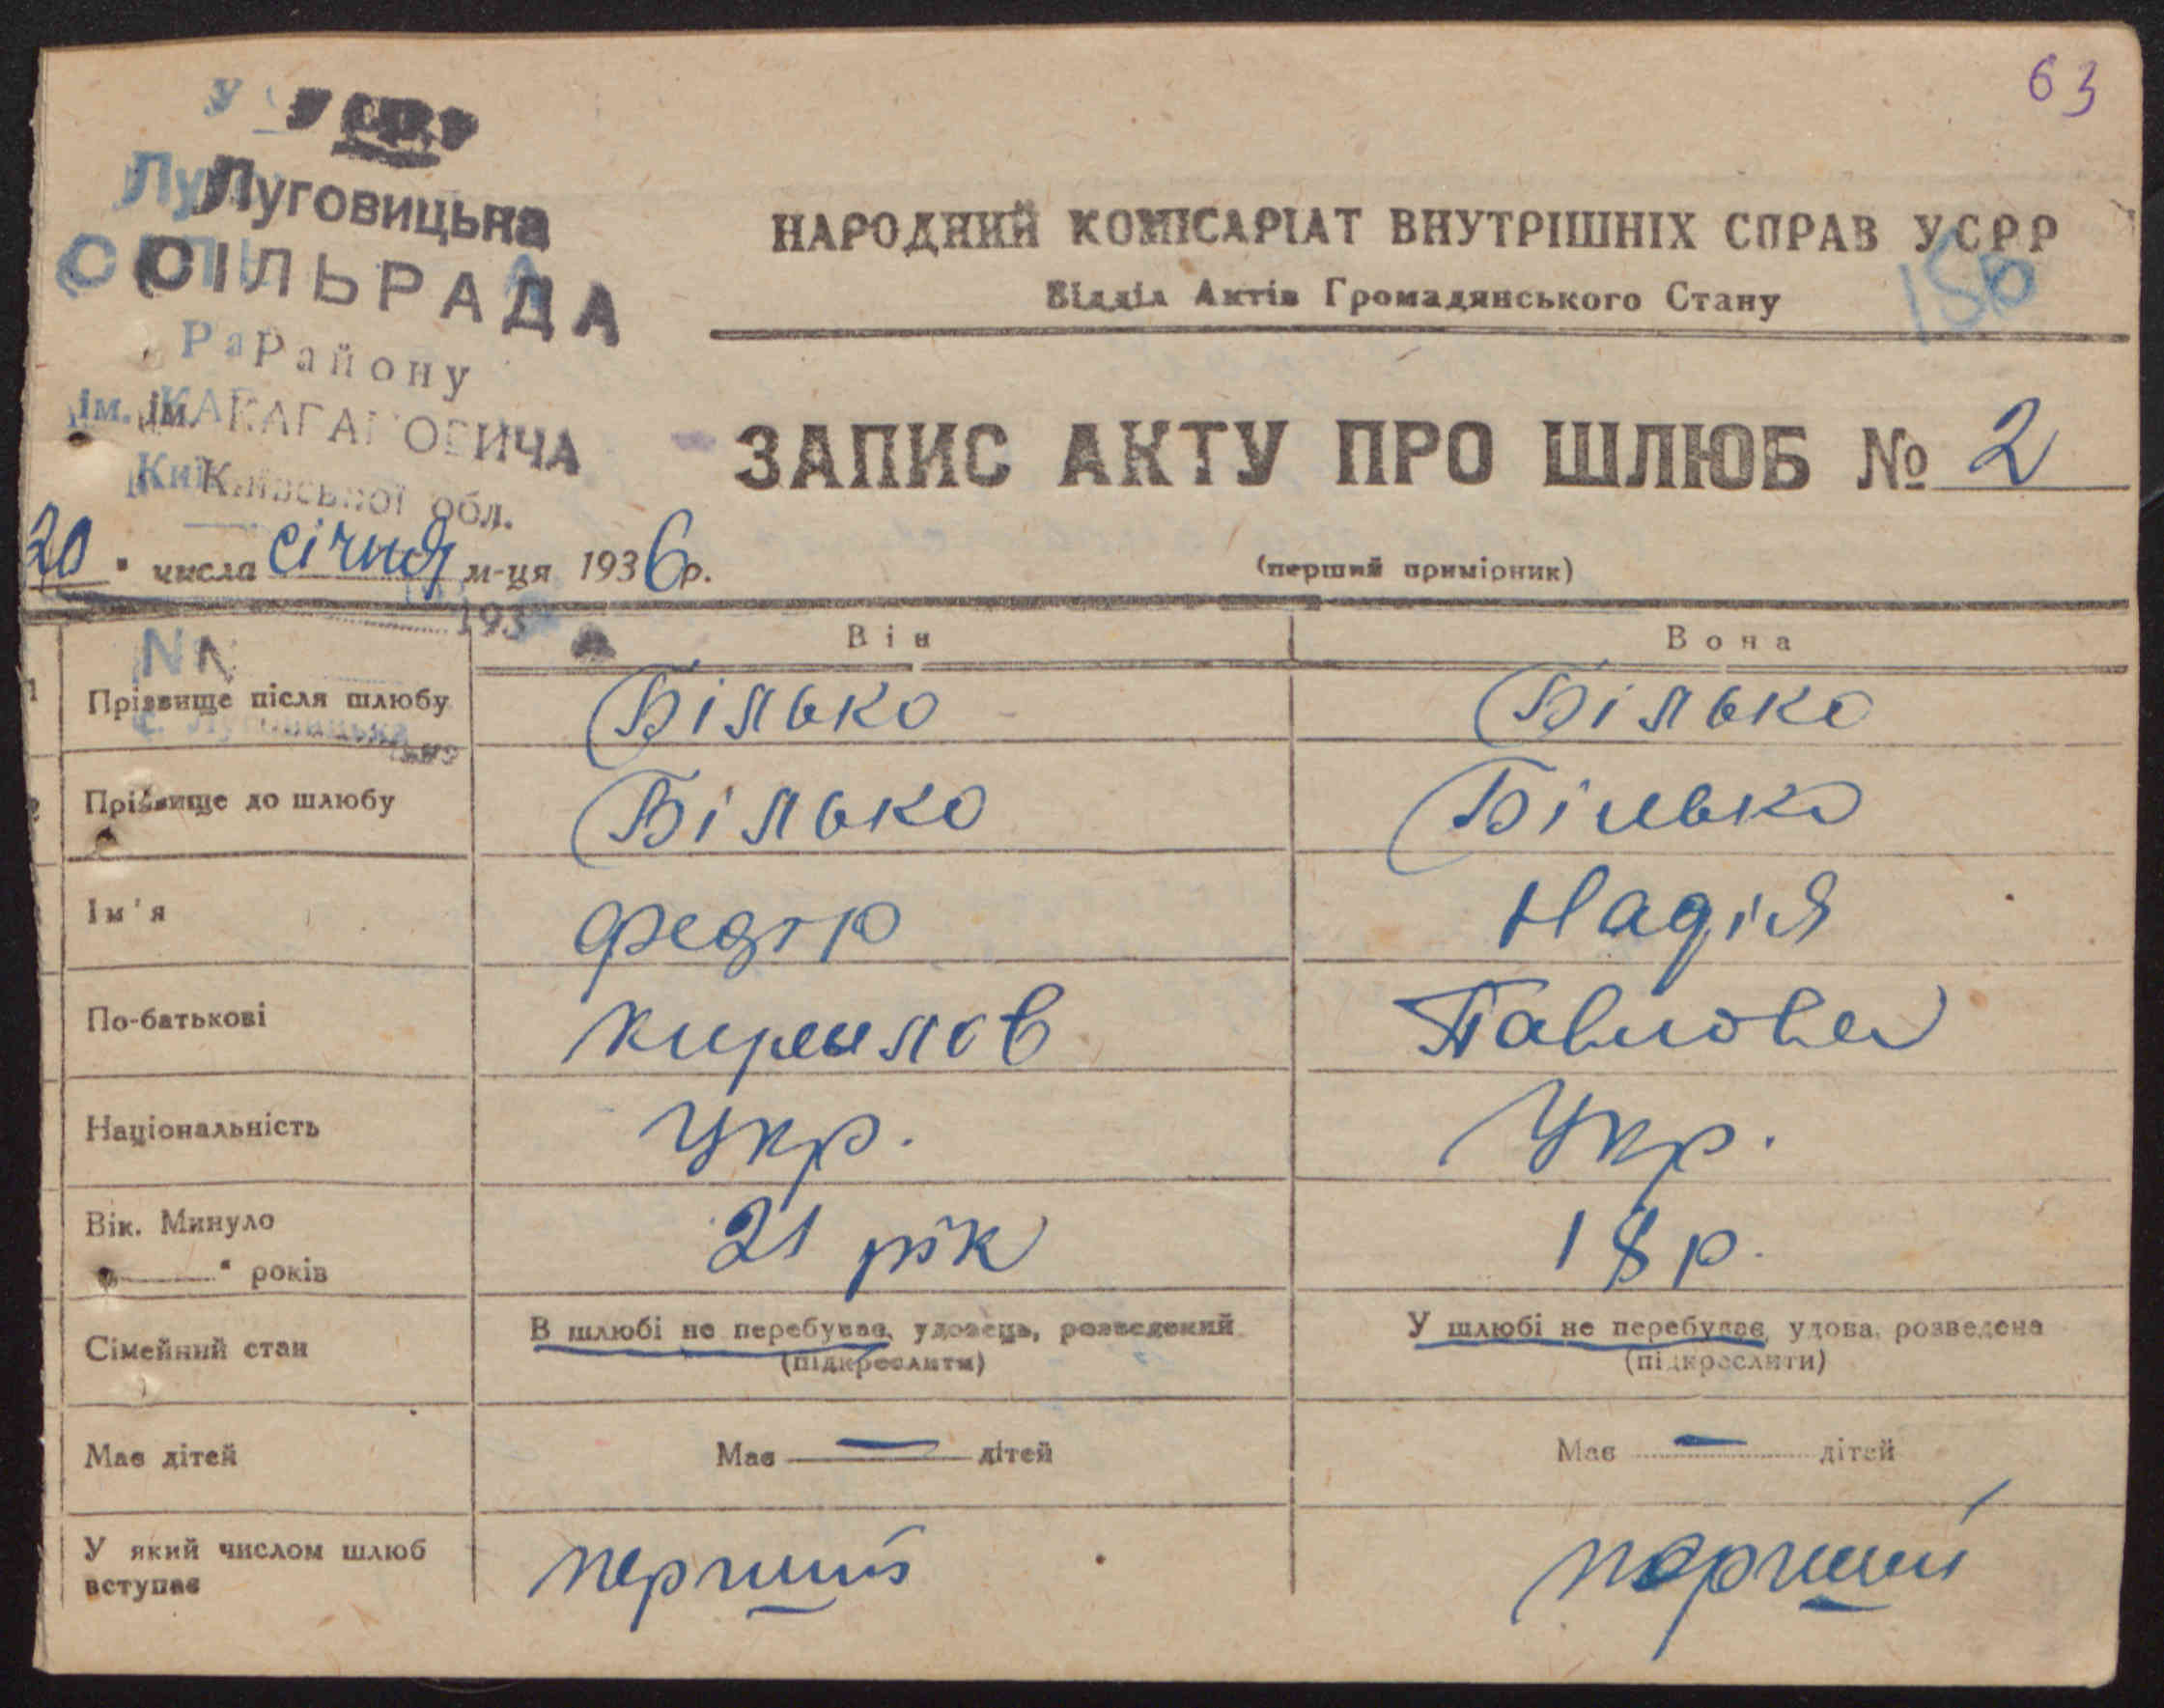 63
УСРР
Луговицька
СІЛЬРАДА
Району
ім. КАГАНОВИЧА
Київської обл.
НАРОДНИЙ КОМІСАРІАТ ВНУТРІШНІХ СПРАВ УСРР
Відділ Актів Громадянського Стану
ЗАПИС АКТУ ПРО ШЛЮБ № 2
20 " числа січня м-ця 1936 р.
(перший примірник)
193
Він Вона
Прізвище після шлюбу Білько Білько
Прізвище до шлюбу Білько Білько
Ім'я Федір Надія
По-батькові Кирылов Павлова
Національність Укр. Укр.
Вік. Минуло 21 рік 18 р.
" " років
Сімейний стан В шлюбі не перебуває, удовець, розведений У шлюбі не перебуває, удова, розведена
(підкреслити) (підкреслити)
Має дітей Має — дітей Має — дітей
У який числом шлюб перший перший
вступає